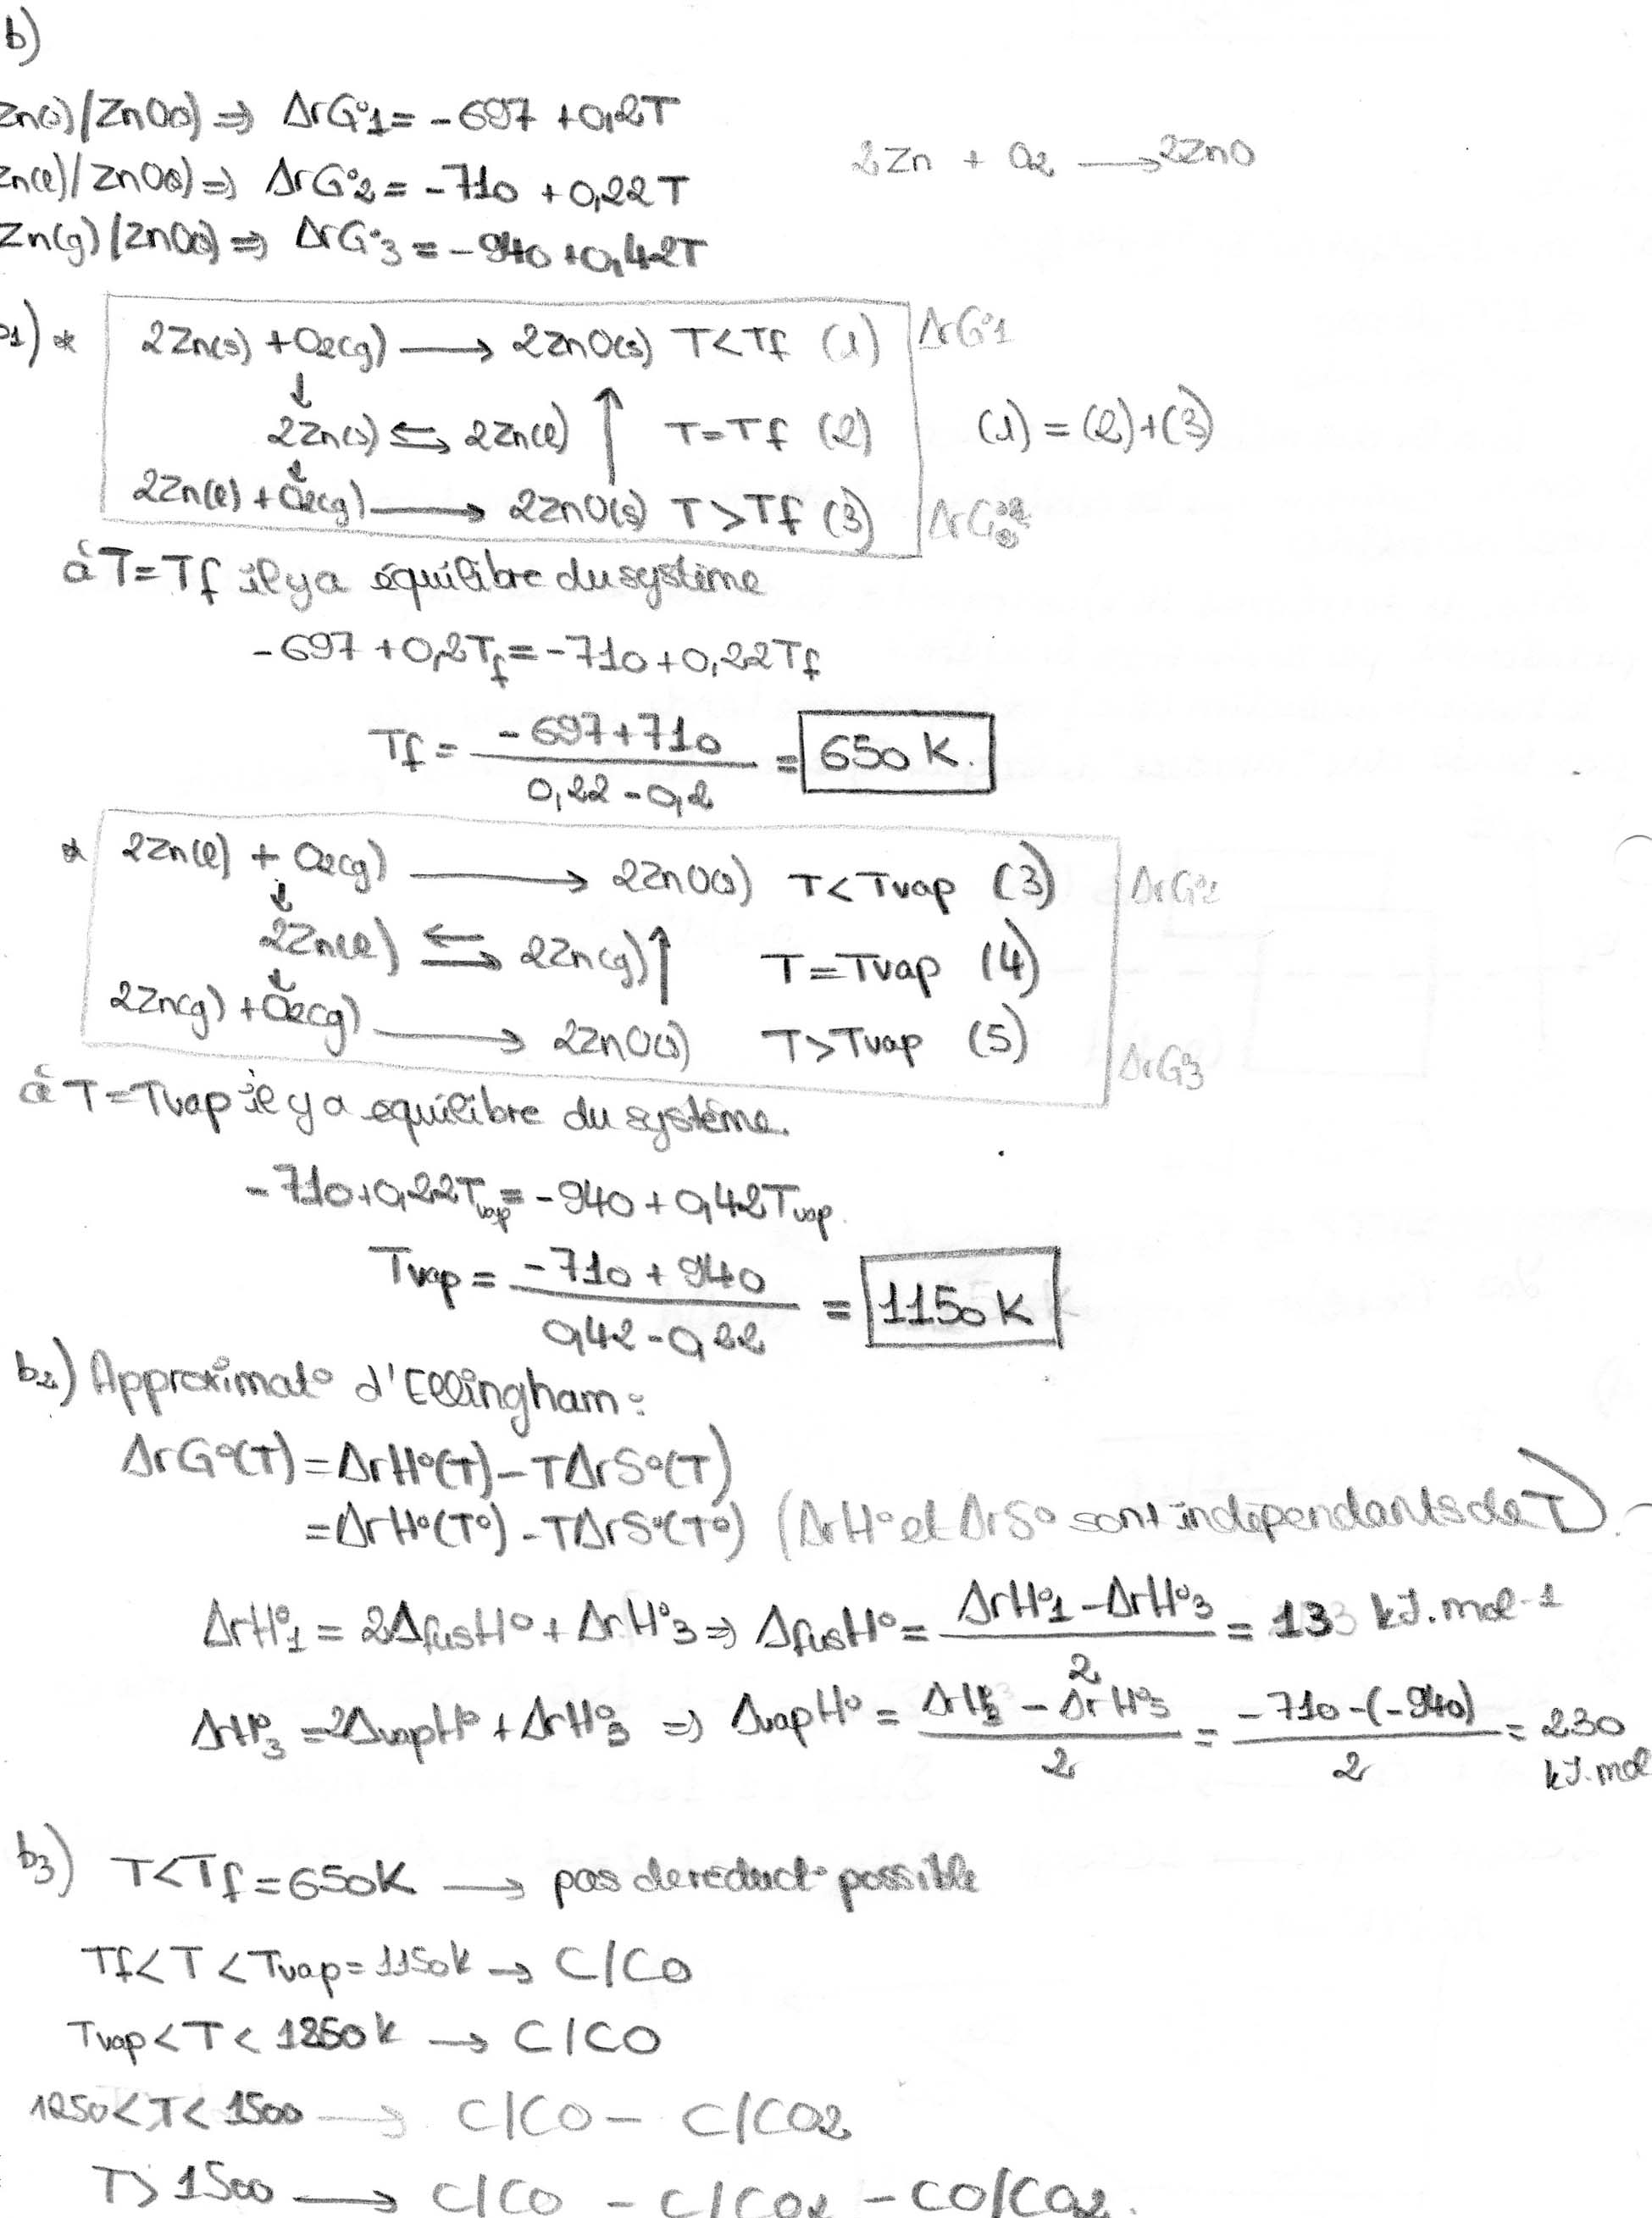 b)
Zn(s)/ZnO(s) => ΔrG°1 = -697 + 0,2T
2Zn + O2 → 2ZnO
Zn(l)/ZnO(s) => ΔrG°2 = -710 + 0,22T
Zn(g)/ZnO(s) => ΔrG°3 = -940 + 0,42T
b1) * 2Zn(s) + O2(g) → 2ZnO(s) T<Tf (1) ΔrG°1
2Zn(s) ⇆ 2Zn(l) ↑ T=Tf (2) (1) = (2)+(3)
2Zn(l) + O2(g) → 2ZnO(s) T>Tf (3) ΔrG°2
à T=Tf il y a équilibre du système
-697 + 0,2Tf = -710 + 0,22Tf
Tf = (-697+710)/(0,22-0,2) = 650 K.
* 2Zn(l) + O2(g) → 2ZnO(s) T<Tvap (3) ΔrG°2
2Zn(l) ⇆ 2Zn(g) ↑ T=Tvap (4)
2Zn(g) + O2(g) → 2ZnO(s) T>Tvap (5) ΔrG°3
à T=Tvap il y a equilibre du système.
-710+0,22Tvap = -940 + 0,42Tvap.
Tvap = (-710 + 940)/(0,42-0,22) = 1150 K
b2) Approximat° d'Ellingham:
ΔrG°(T) = ΔrH°(T) - TΔrS°(T)
= ΔrH°(T°) - TΔrS°(T°) (ΔrH° et ΔrS° sont indépendants de T).
ΔrH°1 = 2ΔfusH° + ΔrH°3 => ΔfusH° = (ΔrH°1 - ΔrH°3)/2 = 13 kJ.mol-1
ΔrH°3 = 2ΔvapH° + ΔrH°3 => ΔvapH° = (ΔrH°3 - ΔrH°3)/2 = (-710-(-940))/2 = 230
kJ.mol
b3) T<Tf = 650K → pas de réduct° possible
Tf<T<Tvap = 1150k → C/CO
Tvap<T< 1250k → C/CO
1250<T< 1500 → C/CO - C/CO2
T> 1500 → C/CO - C/CO2 - CO/CO2.